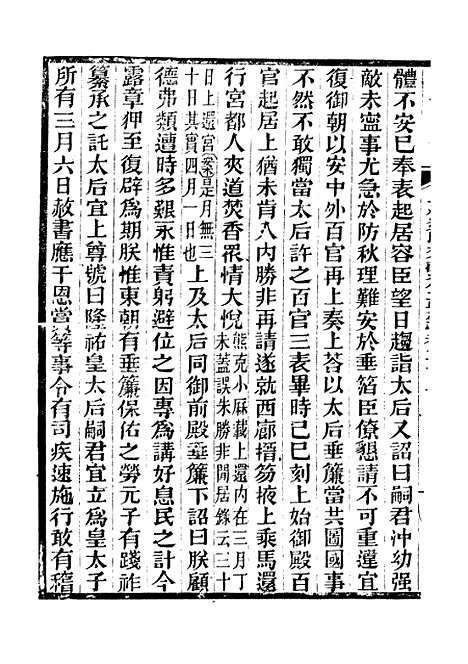 體不安已奉表起居容臣望日趨詣太后又詔曰嗣君沖幼强
敵未寧事尤急於防秋理難安於垂箔臣僚懇請不可重違宜
復御朝以安中外百官再上奏上荅以太后垂簾當共圖國事
不然不敢獨當太后許之百官三表畢時已巳刻上始御殿百
官起居上猶未肯入內勝非再請遂就西廊搢笏掖上乘馬還
行宮都人夾道焚香衆情大悅熊克小厤載上還內在三月丁未蓋誤朱勝非閒居錄云三十
日上還宮案是月無三十日其實四月一日也上及太后同御前殿垂簾下詔曰朕顧
德弗類遭時多艱永惟責躬避位之因專爲講好息民之計今
露章狎至復辟爲期朕惟東朝有垂簾保佑之勞元子有踐祚
纂承之託太后宜上尊號曰隆祐皇太后嗣君宜立爲皇太子
所有三月六日赦書應干恩賞等事令有司疾速施行敢有稽